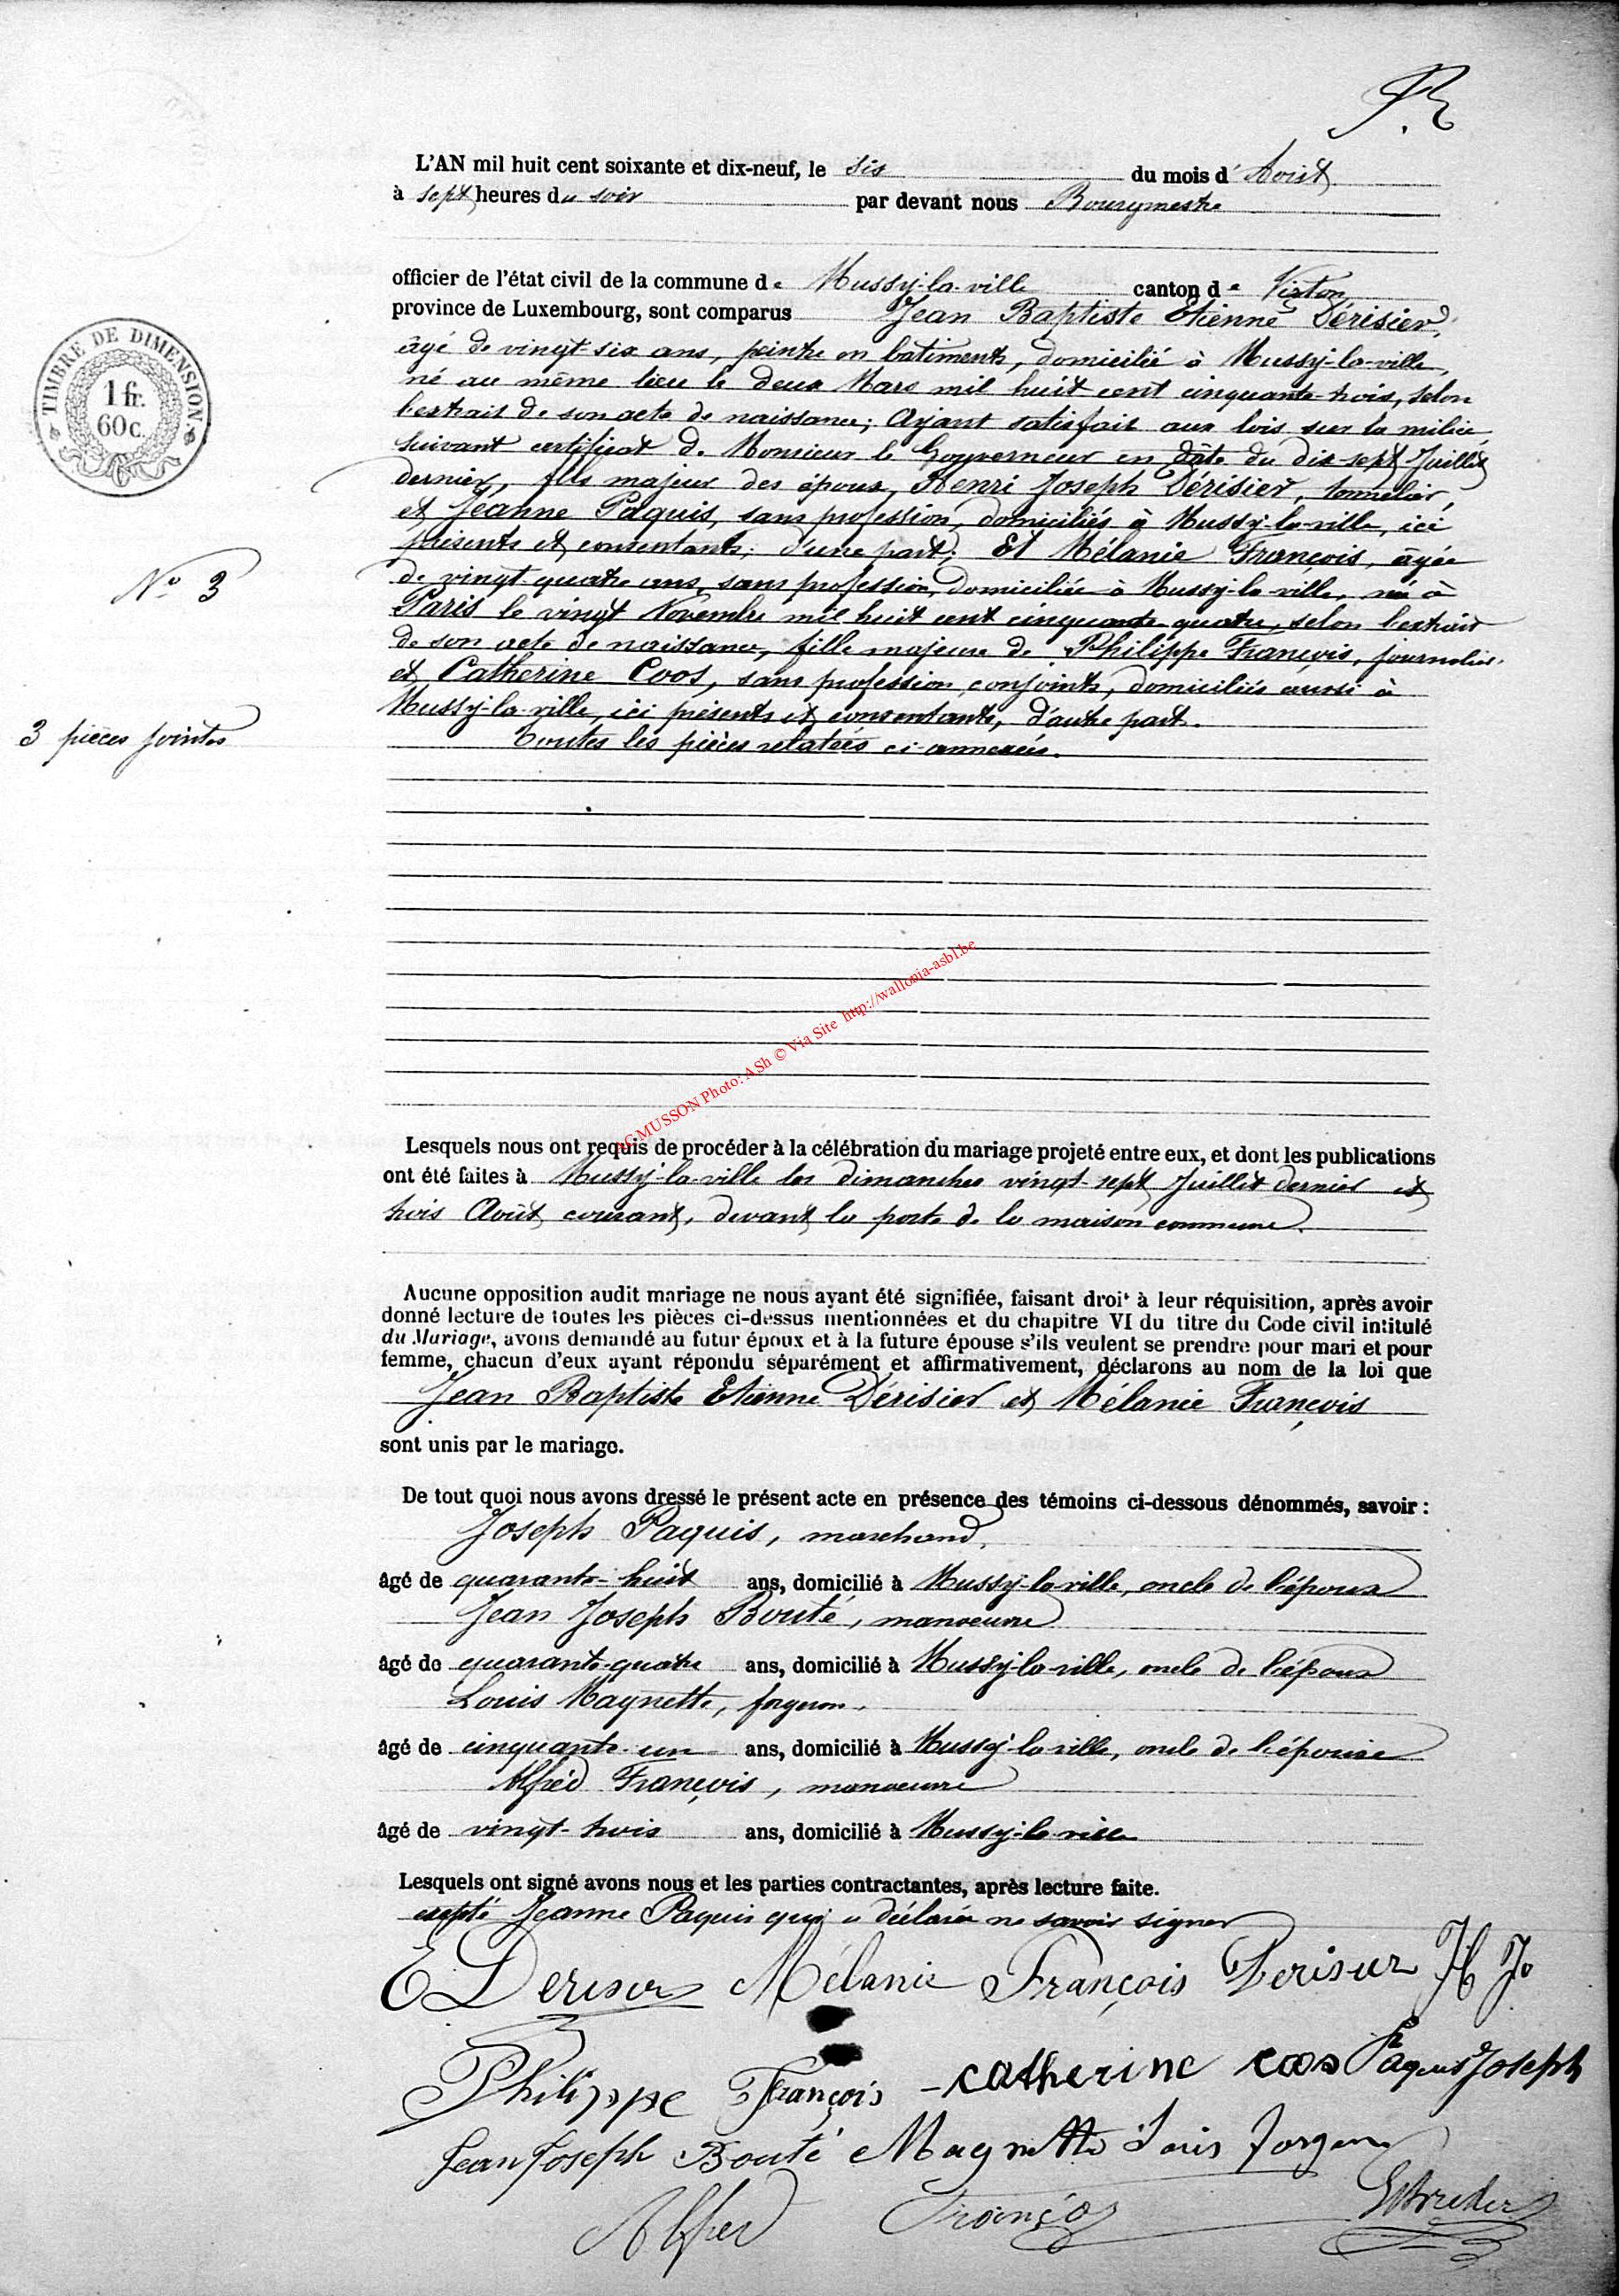 L'AN mil huit cent soixante et dix-neuf, le six du mois d' Août
à sept heures du soir par devant nous Bourgmestre
officier de l'état civil de la commune de Mussy-la-ville canton de Virton
province de Luxembourg, sont comparus Jean Baptiste Etienne Dérisier,
âgé de vingt-six ans, peintre en batiments, domicilié à Mussy-la-ville,
né au même lieu le deux Mars mil huit cent cinquante-trois, selon
l'extrait de son acte de naissance; Ayant satisfait aux lois sur la milice
suivant certificat de Monsieur le Gouverneur en date du dix-sept Juillet
dernier, fils majeur des époux Henri Joseph Dérisier, tonnelier,
et Jeanne Paquis, sans profession, domiciliés à Mussy-la-ville, ici
présents et consentants, d'une part; Et Mélanie François, âgée
de vingt-quatre ans, sans profession, domiciliée à Mussy-la-ville, née à
Paris le vingt Novembre mil huit cent cinquante-quatre, selon l'extrait
de son acte de naissance, fille majeure de Philippe François, journalier
et Catherine Coos, sans profession, conjoints, domiciliés aussi à
Mussy-la-ville, ici présents et consentants, d'autre part.
Toutes les pièces relatées ci-annexées.
TIMBRE DE DIMENSION
1 fr.
60 c.
No 3
3 pièces jointes
AC MUSSON Photo: ASh © Via Site http://wallonia-asbl.be
Lesquels nous ont requis de procéder à la célébration du mariage projeté entre eux, et dont les publications
ont été faites à Mussy-la-ville les dimanches vingt-sept Juillet dernier et
trois Août courant, devant la porte de la maison commune.
Aucune opposition audit mariage ne nous ayant été signifiée, faisant droit à leur réquisition, après avoir
donné lecture de toutes les pièces ci-dessus mentionnées et du chapitre VI du titre du Code civil intitulé
du Mariage, avons demandé au futur époux et à la future épouse s'ils veulent se prendre pour mari et pour
femme, chacun d'eux ayant répondu séparément et affirmativement, déclarons au nom de la loi que
Jean Baptiste Etienne Dérisier et Mélanie François
sont unis par le mariage.
De tout quoi nous avons dressé le présent acte en présence des témoins ci-dessous dénommés, savoir :
Joseph Paquis, marchand,
âgé de quarante-huit ans, domicilié à Mussy-la-ville, oncle de l'époux
Jean Joseph Bouté, manoeuvre
âgé de quarante-quatre ans, domicilié à Mussy-la-ville, oncle de l'époux
Louis Magnette, forgeron,
âgé de cinquante-un ans, domicilié à Mussy-la-ville, oncle de l'épouse
Alfred François, manoeuvre
âgé de vingt-trois ans, domicilié à Mussy-la-ville
Lesquels ont signé avons nous et les parties contractantes, après lecture faite.
excepté Jeanne Paquis qui a déclaré ne savoir signer
E Derisier Mélanie François Derisier H Jo
Philippe François catherine coos Paquis Joseph
Jean Joseph Bouté Magnette Louis forgeron
Alfred François